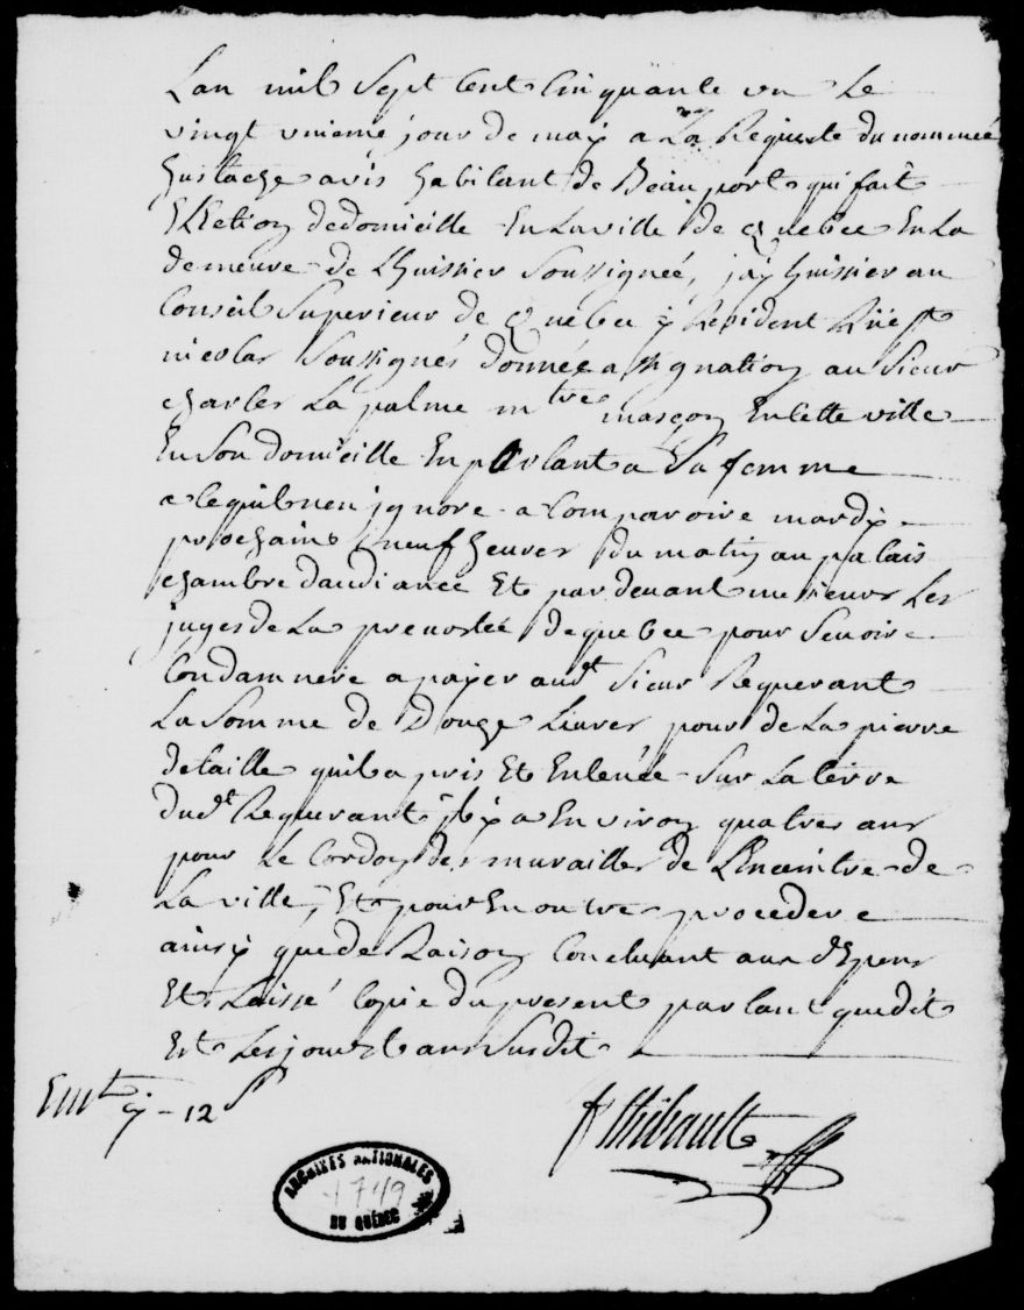 Lan mil Sept Cent Cinquante un Le
vingt unieme jour de may a La Requeste du nommée
Eustache avis habitant de Beauport qui fait
Ellection dedomicille En Laville de quebec En La
demeure de Lhuissier Soussignée, jay huissier au
Conseil Superieur de quebec y Resident Rüe St
nicolas Soussignés donnée assignation au Sieur
charles La palme mtre masçon En Cette ville
En Son domicille En parlant a Sa femme
a Cequil nen jgnore a Comparoire mardy
prochain neuf heures du matin au palais
chambre daudiance Et par devant messieurs Les
juges de La prevostée de quebec pour Sevoire
Condamnere a payer audt Sieur Requerant
La Somme de Douze Livres pour de La pierre
detaille quil a pris Et Enlevée Sur La terre
dudt Requerant jl y a Environ quatres ans
pour Le Cordon des murailles de Lenceintre de
La ville, Et pour En outre procedere
ainsy que de Raison Concluant aux dEpens
Et Laissé Copie du present parlant que dit
Est Les jour Et ans Susdit
12 s
Thibault
ARCHIVES NATIONALES
1749
DU QUÉBEC